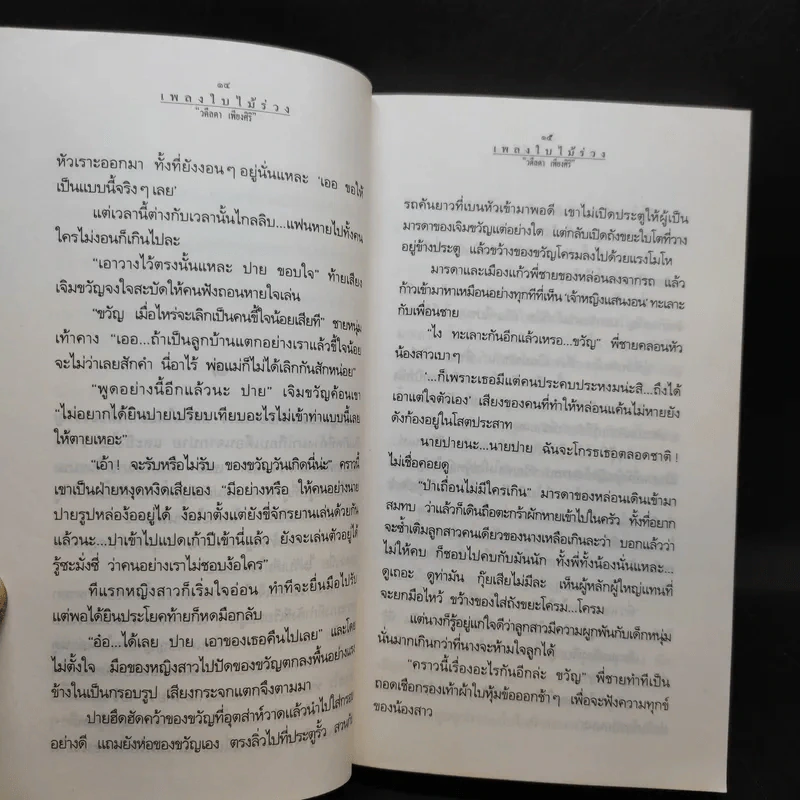 ๑๔
เพลงใบไม้ร่วง
"วตีลดา เพียงศิริ"
หัวเราะออกมา ทั้งที่ยังงอนๆ อยู่นั่นแหละ 'เออ ขอให้
เป็นแบบนี้จริงๆ เลย'
แต่เวลานี้ต่างกับเวลานั้นไกลลิบ...แฟนหายไปทั้งคน
ใครไม่งอนก็เกินไปละ
"เอาวางไว้ตรงนั้นแหละ ปาย ขอบใจ" ท้ายเสียง
เจิมขวัญจงใจสะบัดให้คนฟังถอนหายใจเล่น
"ขวัญ เมื่อไหร่จะเลิกเป็นคนขี้ใจน้อยเสียที" ชายหนุ่ม
เท้าคาง "เออ...ถ้าเป็นลูกบ้านแตกอย่างเราแล้วขี้ใจน้อย
จะไม่ว่าเลยสักคำ นี่อาไร้ พ่อแม่ก็ไม่ได้เลิกกันสักหน่อย"
"พูดอย่างนี้อีกแล้วนะ ปาย" เจิมขวัญค้อนเขา
"ไม่อยากได้ยินปายเปรียบเทียบอะไรไม่เข้าท่าแบบนี้เลย
ให้ตายเหอะ"
"เอ้า! จะรับหรือไม่รับ ของขวัญวันเกิดนี่น่ะ" คราวนี้
เขาเป็นฝ่ายหงุดหงิดเสียเอง "มีอย่างหรือ ให้คนอย่างนาย
ปายรูปหล่อง้ออยู่ได้ ง้อมาตั้งแต่ยังขี่จักรยานเล่นด้วยกัน
แล้วนะ...ปาเข้าไปแปดเก้าปีเข้านี่แล้ว ยังจะเล่นตัวอยู่ได้
รู้ซะมั่งซี่ ว่าคนอย่างเราไม่ชอบง้อใคร"
ทีแรกหญิงสาวก็เริ่มใจอ่อน ทำทีจะยื่นมือไปรับ
แต่พอได้ยินประโยคท้ายก็หดมือกลับ
"อ๋อ...ได้เลย ปาย เอาของเธอคืนไปเลย" และโดย
ไม่ตั้งใจ มือของหญิงสาวไปปัดของขวัญตกลงพื้นอย่างแรง
ข้างในเป็นกรอบรูป เสียงกระจกแตกจึงตามมา
ปายฮึดฮัดคว้าของขวัญที่อุตส่าห์วาดแล้วนำไปใส่กรอบ
อย่างดี แถมยังห่อของขวัญเอง ตรงลิ่วไปที่ประตูรั้ว
๑๕
เพลงใบไม้ร่วง
"วตีลดา เพียงศิริ"
รถคันยาวที่เบนหัวเข้ามาพอดี เขาไม่เปิดประตูให้ผู้เป็น
มารดาของเจิมขวัญแต่อย่างใด แต่กลับเปิดถังขยะใบโตที่วาง
อยู่ข้างประตู แล้วขว้างของขวัญโครมลงไปด้วยแรงโมโห
มารดาและเมืองแก้วพี่ชายของหล่อนลงจากรถ แล้ว
ก้าวเข้ามาหาเหมือนอย่างทุกทีที่เห็น 'เจ้าหญิงแสนงอน' ทะเลาะ
กับเพื่อนชาย
"ไง ทะเลาะกันอีกแล้วเหรอ...ขวัญ" พี่ชายคลอนหัว
น้องสาวเบาๆ
'...ก็เพราะเธอมีแต่คนประคบประหงมน่ะสิ...ถึงได้
เอาแต่ใจตัวเอง' เสียงของคนที่ทำให้หล่อนแค้นไม่หายยัง
ดังก้องอยู่ในโสตประสาท
นายปายนะ...นายปาย ฉันจะโกรธเธอตลอดชาติ!
ไม่เชื่อคอยดู
"ป่าเถื่อนไม่มีใครเกิน" มารดาของหล่อนเดินเข้ามา
สมทบ ว่าแล้วก็เดินถือตะกร้าผักหายเข้าไปในครัว ทั้งที่อยาก
จะซ้ำเติมลูกสาวคนเดียวของนางเหลือเกินละว่า บอกแล้วว่า
ไม่ให้คบ ก็ชอบไปคบกับมันนัก ทั้งพี่ทั้งน้องนั่นแหละ...
ดูเถอะ ดูท่ามัน กุ๊ยเสียไม่มีละ เห็นผู้หลักผู้ใหญ่แทนที่
จะยกมือไหว้ ขว้างของใส่ถังขยะโครม...โครม
แต่นางก็รู้อยู่แก่ใจดีว่าลูกสาวมีความผูกพันกับเด็กหนุ่ม
นั่นมากเกินกว่าที่นางจะห้ามใจลูกได้
"คราวนี้เรื่องอะไรกันอีกล่ะ ขวัญ" พี่ชายทำทีเป็น
ถอดเชือกรองเท้าผ้าใบหุ้มข้อออกช้าๆ เพื่อจะฟังความทุกข์
ของน้องสาว